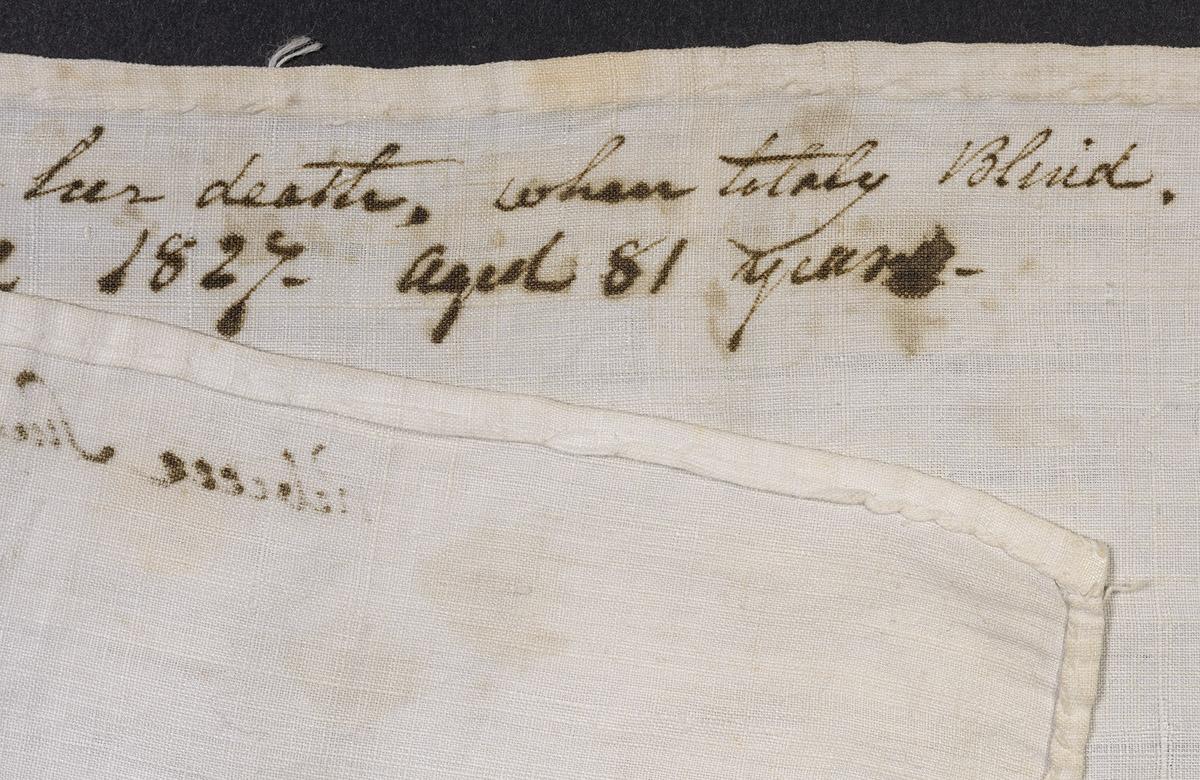 her death, when totaly Blind.
1827. aged 81 years-